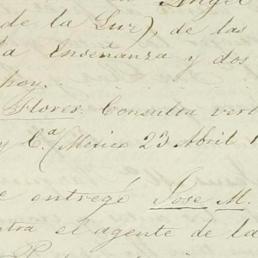 Angel
de la Luz), de las
la Enseñanza y dos
hoy.
Flores. Consulta verb
y C.ª (México 23 Abril 1
e entregé Jose M.
ntra el agente de la